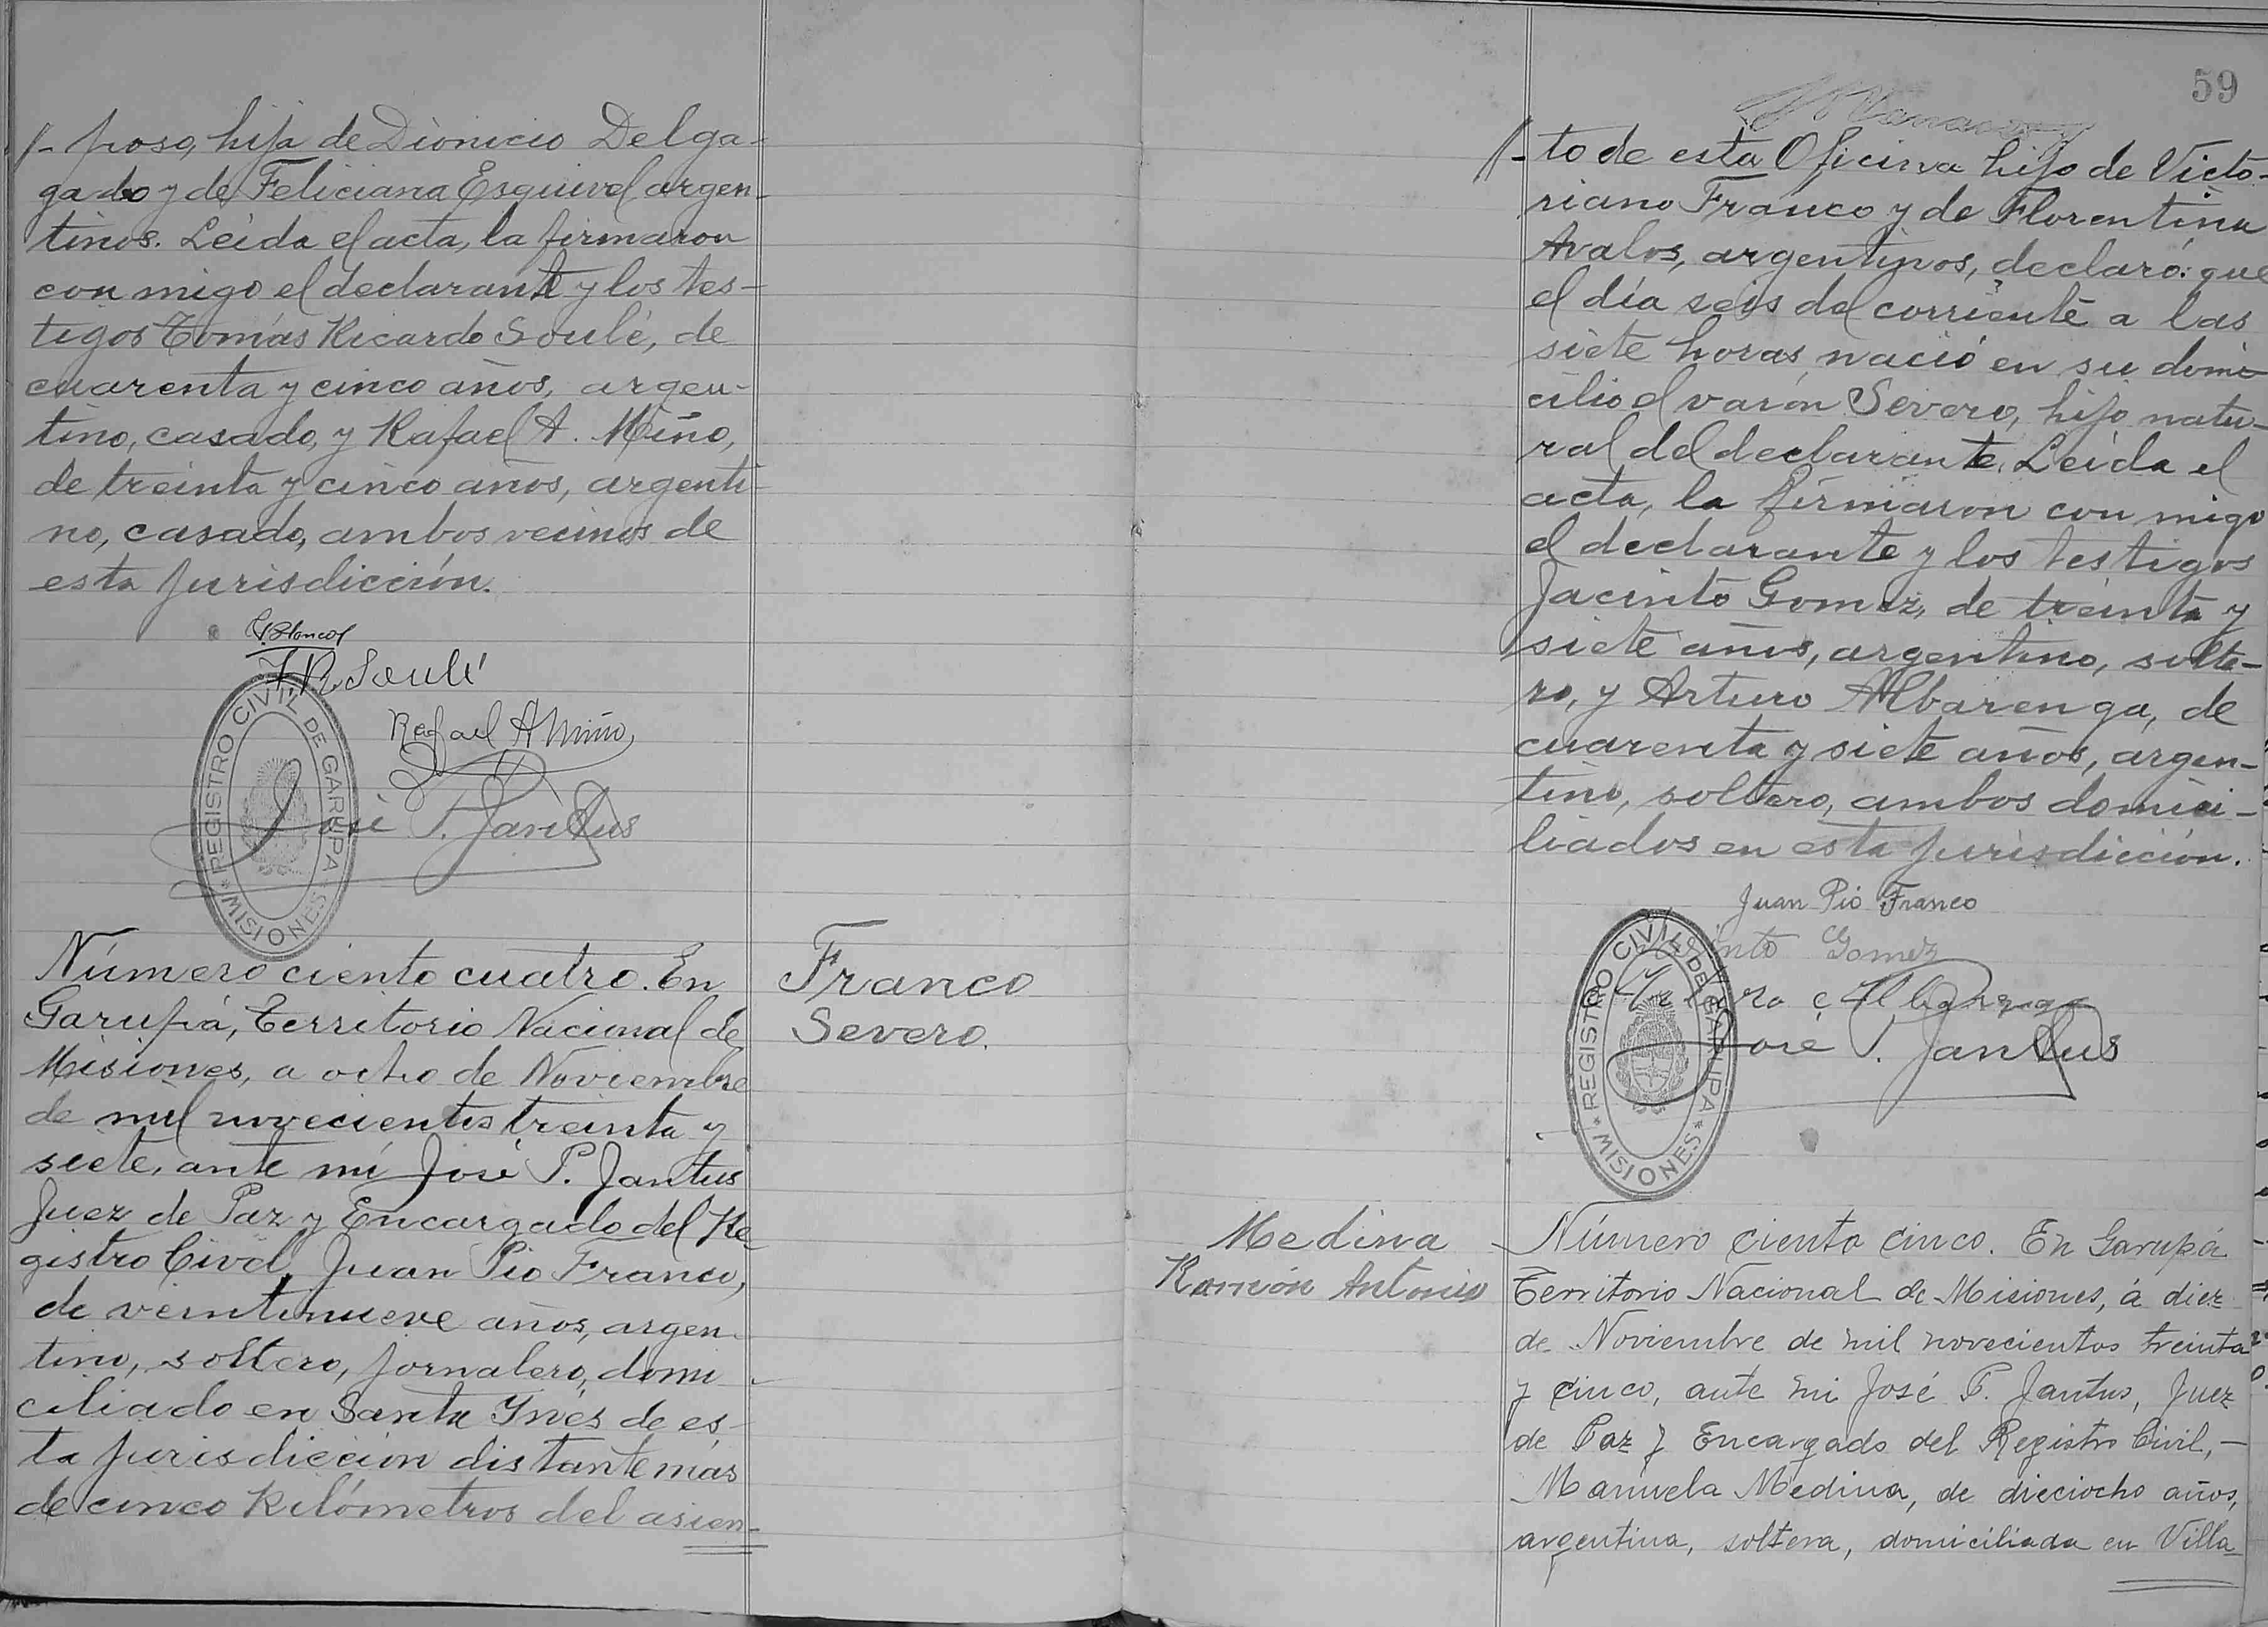 /- poso, hija de Dionicio Delga-
gado y de Feliciana Esquivel argen-
tinos. Leída el acta, la firmaron
con migo el declarante y los tes-
tigos Tomás Ricardo Soulé, de
cuarenta y cinco años, argen-
tino, casado, y Rafael A. Miño,
de treinta y cinco años, argenti-
no, casado, ambos vecinos de
esta jurisdicción.
T. R. Soulé
Rafael A Miño
José P. Jantus
REGISTRO CIVIL DE GARUPA
* MISIONES *
Número ciento cuatro. En
Garupá, Territorio Nacional de
Misiones, a ocho de Noviembre
de mil novecientos treinta y
siete, ante mí José P. Jantus
Juez de Paz y Encargado del Re-
gistro Civil, Juan Pio Franco,
de veintinueve años, argen-
tino, soltero, jornalero, domi-
ciliado en Santa Ynés de es-
ta jurisdicción distante más
de cinco Kilómetros del asien-
Franco
Severo.
59
/- to de esta Oficina hijo de Victo-
riano Franco y de Florentina
Avalos, argentinos, declaró: que
el día seis del corriente a las
siete horas nació en su domi-
cilio el varón Severo, hijo natu-
ral del declarante. Leída el
acta, la firmaron con migo
el declarante y los testigos
Jacinto Gomez, de treinta y
siete años, argentino, solte-
ro, y Arturo Albarenga, de
cuarenta y siete años, argen-
tino, soltero, ambos domici-
liados en esta jurisdicción.
Juan Pio Franco
Jacinto Gomez
Arturo Albarenga
José P. Jantus
REGISTRO CIVIL DE GARUPA
* MISIONES *
Medina
Ramón Antonio
Número ciento cinco. En Garupá
Territorio Nacional de Misiones, á diez
de Noviembre de mil novecientos treinta
y cinco, ante mi José P. Jantus, Juez
de Paz y Encargado del Registro Civil,-
Manuela Medina, de dieciocho años,
argentina, soltera, domiciliada en Villa-